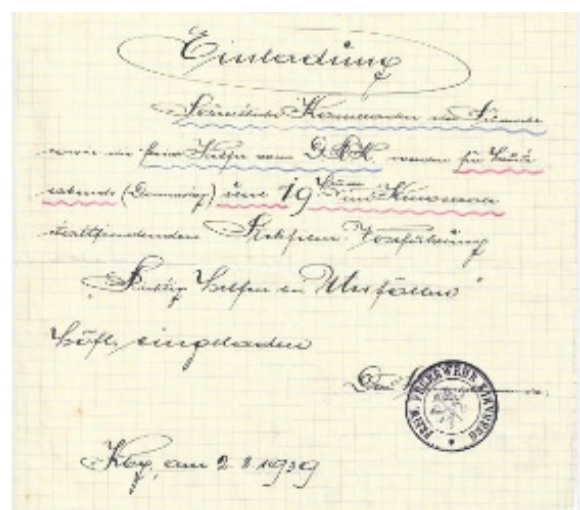 Einladung
Sämtliche Kameraden
sowie die Helfer vom D.R.K. werden für heute
abends (Donnerstag) um 19 Uhr im Kinosaale
stattfindenden Vorführung
"Richtig Helfen bei Unfällen"
höfl. eingeladen
FREIW. FEUERWEHR
Kbg, am 2.II.1939